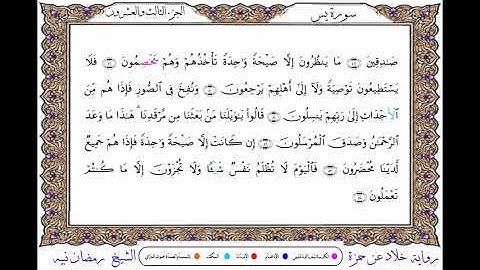 الجزء الثالث والعشرون
سورة يس
صَٰدِقِينَ ۝ مَا يَنظُرُونَ إِلَّا صَيْحَةً وَٰحِدَةً تَأْخُذُهُمْ وَهُمْ يَخْصِمُونَ ۝ فَلَا
يَسْتَطِيعُونَ تَوْصِيَةً وَلَآ إِلَىٰٓ أَهْلِهِمْ يَرْجِعُونَ ۝ وَنُفِخَ فِي الصُّورِ فَإِذَا هُم مِّنَ
الْأَجْدَاثِ إِلَىٰ رَبِّهِمْ يَنسِلُونَ ۝ قَالُوا۟ يَٰوَيْلَنَا مَنۢ بَعَثَنَا مِن مَّرْقَدِنَا ۗ هَٰذَا مَا وَعَدَ
الرَّحْمَٰنُ وَصَدَقَ الْمُرْسَلُونَ ۝ إِن كَانَتْ إِلَّا صَيْحَةً وَٰحِدَةً فَإِذَا هُمْ جَمِيعٌ
لَّدَيْنَا مُحْضَرُونَ ۝ فَالْيَوْمَ لَا تُظْلَمُ نَفْسٌ شَيْـًٔا وَلَا تُجْزَوْنَ إِلَّا مَا كُنتُمْ
تَعْمَلُونَ ۝
رواية خلاد عن حمزة
الإدغام
الإمالة
السكت
الشيخ رمضان نبيه